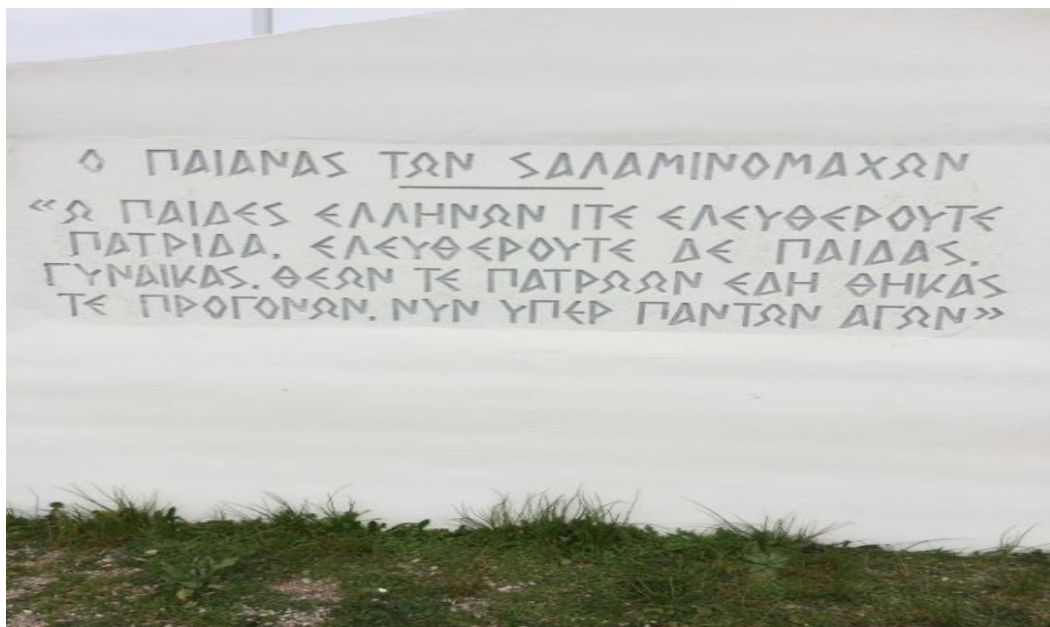 Ο ΠΑΙΑΝΑΣ ΤΩΝ ΣΑΛΑΜΙΝΟΜΑΧΩΝ
«Ω ΠΑΙΔΕΣ ΕΛΛΗΝΩΝ ΙΤΕ ΕΛΕΥΘΕΡΟΥΤΕ
ΠΑΤΡΙΔΑ, ΕΛΕΥΘΕΡΟΥΤΕ ΔΕ ΠΑΙΔΑΣ,
ΓΥΝΑΙΚΑΣ, ΘΕΩΝ ΤΕ ΠΑΤΡΩΩΝ ΕΔΗ ΘΗΚΑΣ
ΤΕ ΠΡΟΓΟΝΩΝ. ΝΥΝ ΥΠΕΡ ΠΑΝΤΩΝ ΑΓΩΝ»